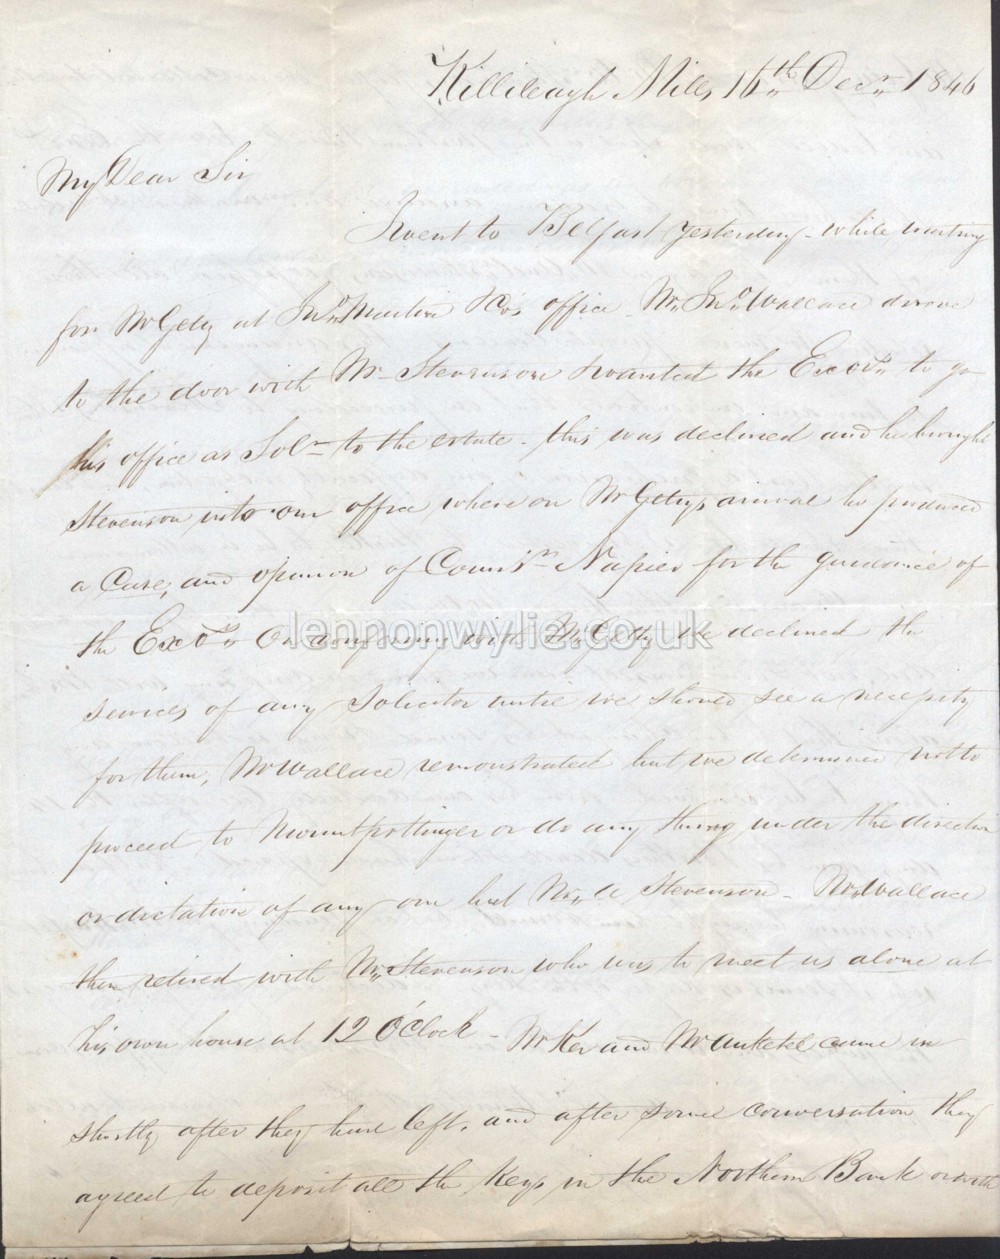 Killileagh Mills 16th Decr 1846
My Dear Sir
I went to Belfast yesterday - while waiting
for Mr Getty at Jno Martin & Co's office - Mr Jno Wallace drove
to the door with Mr Stevenson & wanted the Exors to go
to his office as Solr to the estate - this was declined and he brought
Stevenson into our office where on Mr Gettys arrival he produced
a Case, and opinion of Counsr Napier for the guidance of
the Exors On conferring with Mr Getty we declined the
services of any Solicitor until we should see a necessity
for them, Mr Wallace remonstrated but we determined not to
proceed to Mountpottinger or do any thing under the direction
or dictation of any one but Mr Stevenson - Mr Wallace
then retired with Mr Stevenson who was to meet us alone at
his own house at 12 O'Clock - Mr Ker and Mr Anketel came in
shortly after they had left, and after some conversation they
agreed to deposit all the Keys in the Northern Bank
lennonwylie.co.uk